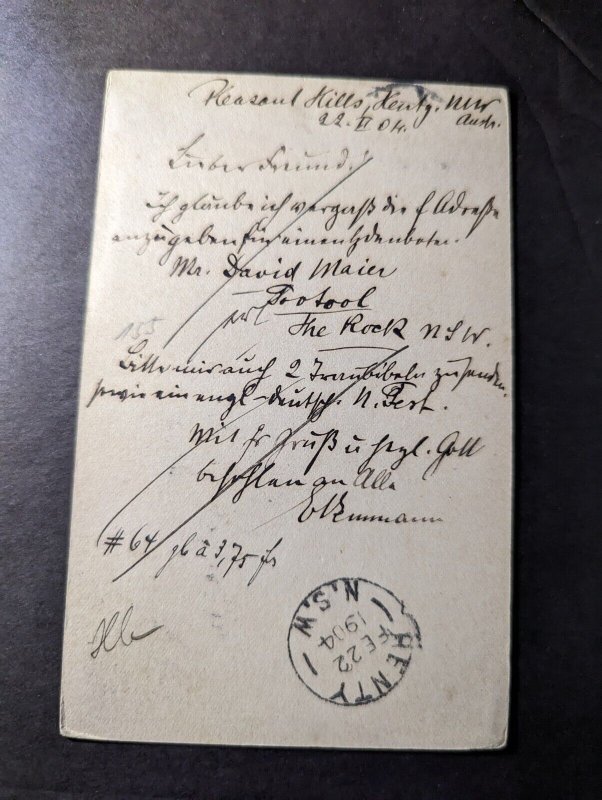 Pleasant Hills, Henty. NSW
22. II 04. Austr.
Lieber Freund!
Ich glaube ich vergaß die Adreße
anzugeben für einen
Mr. David Maier
Tootool
The Rock NSW.
155
Bitte mir auch 2 Traubibeln zu senden
sowie ein engl-deutsch. N. Test.
Mit Gruß u Gott
befohlen an Alle
#64 à 3,75
HENTY
FE 22
1904
N.S.W